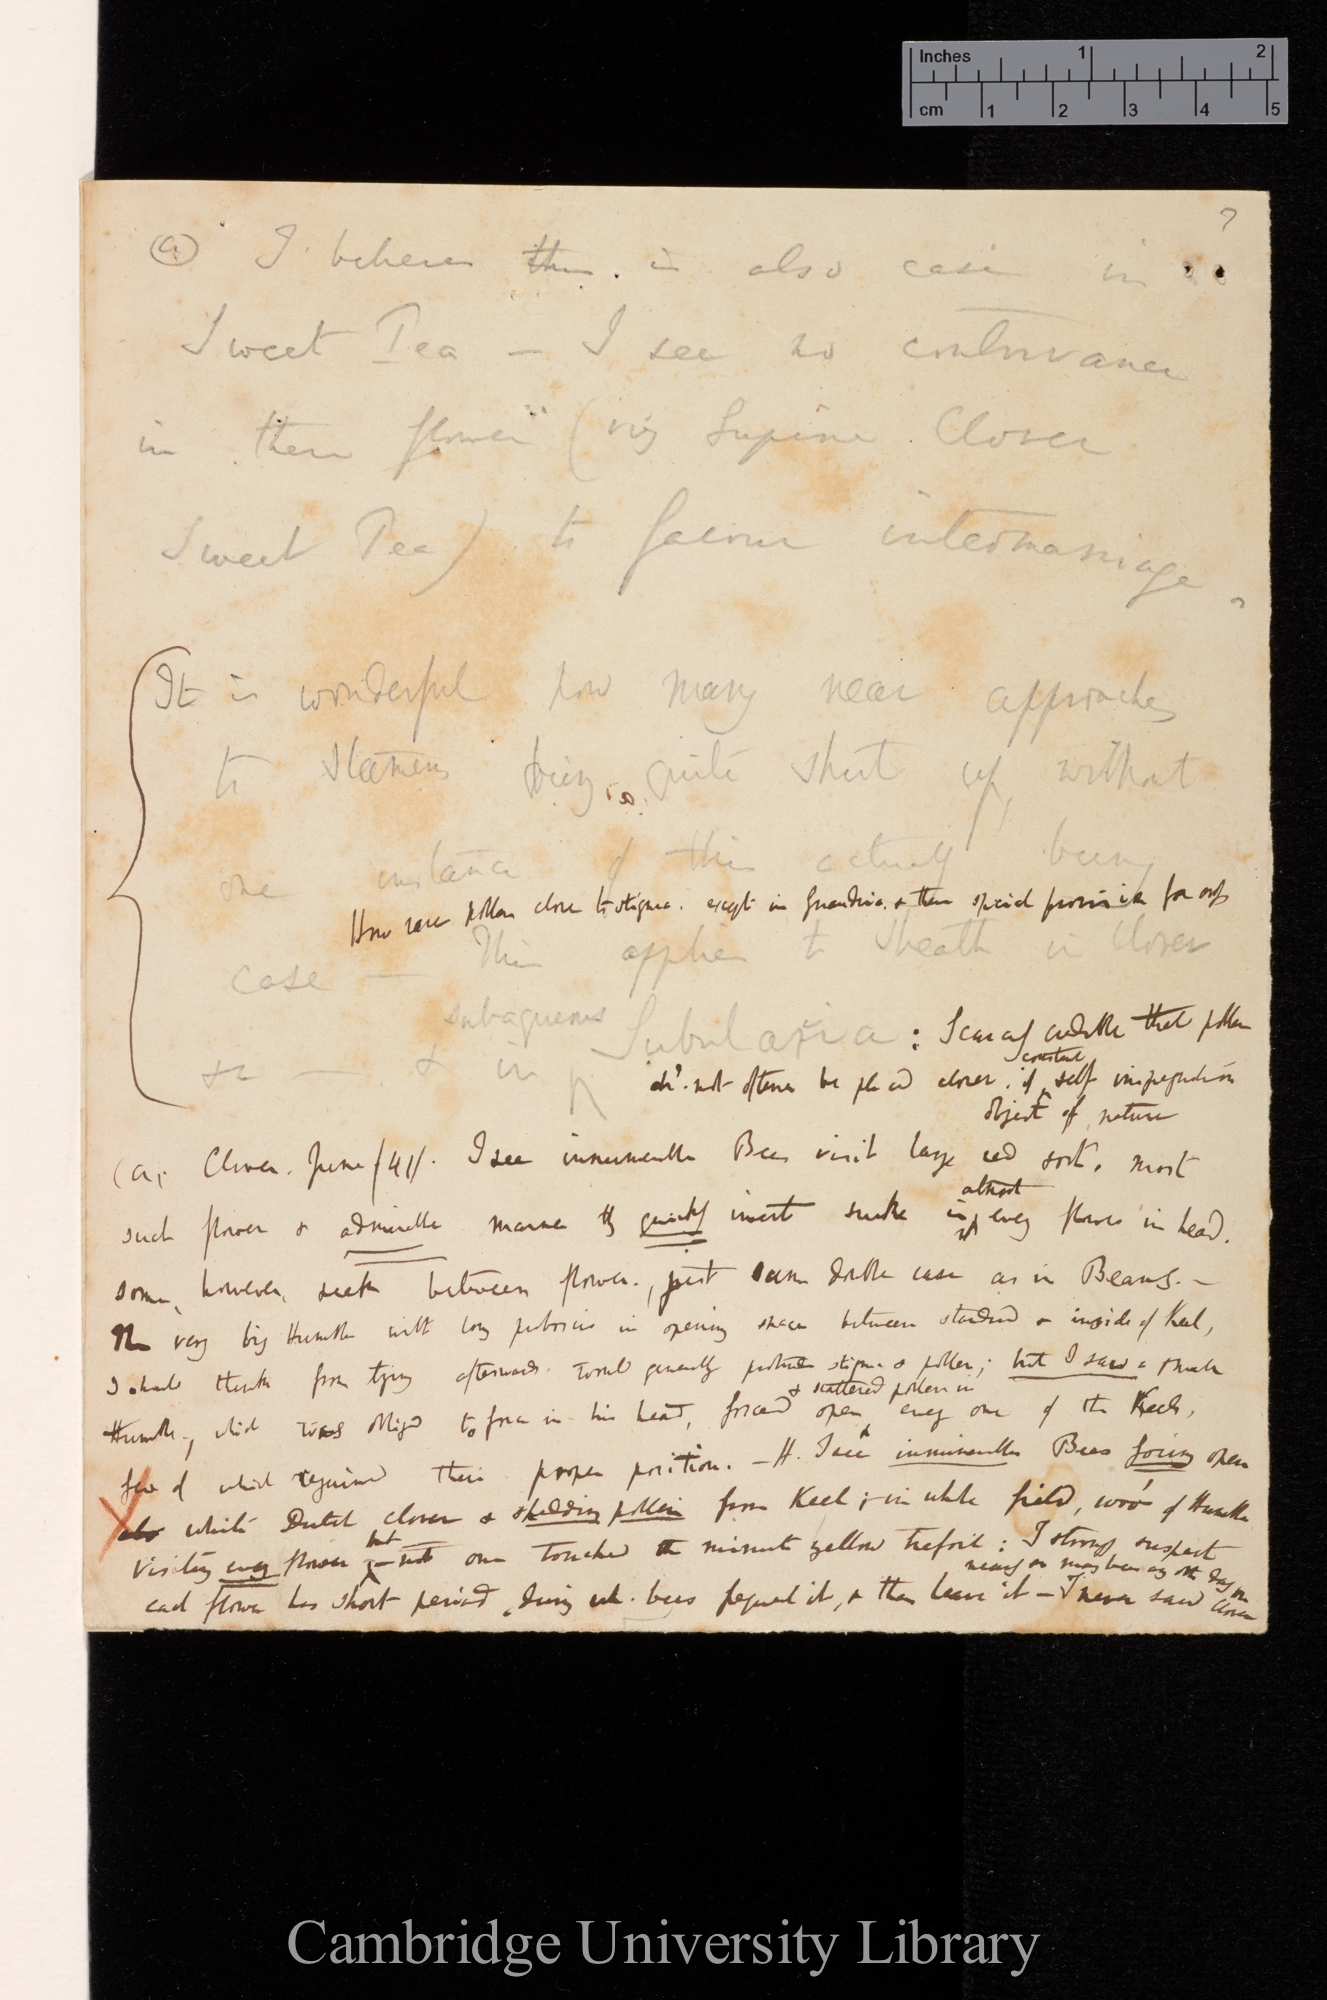 Inches 1 2
cm 1 2 3 4 5
7
(a) I believe there is also case in
Sweet Pea — I see no contrivance
in these flowers (viz Lupine Clover
Sweet Pea) to favour intermarriage.
It is wonderful how many near approaches
to stamens being quite shut up, without
one instance of this actually being
How rare pollen close to stigma. except in & then special provision for
case — This applies to sheath in Clover
&c — & in subaqueous Subularia : Scarcely credible that pollen
shd. not oftener be placed closer, if constant self impregnation
object of nature
(a) Clover. June /41/. I see innumerable Bees visit large red sort, most
such flower & admirable manner they quickly insert sucker in almost every flower in head.
some, however, seek between flower., just same double case as in Beans. —
The very big Humble with long proboscis in opening space between standard & inside of Keel,
I should think from trying afterwards. would generally protrude stigma & pollen; but I saw a small
Humble, which was obliged to force in his head, forced open & scattered pollen in every one of the Keels,
few of which regained their proper position. — H. I see innumerable Bees forcing open
also white Dutch clover & shedding pollen from Keel; & in whole field, of Humble
visiting every flower but not one touched the minute yellow trefoil: I strongly suspect
each flower has short period, during wh. bees frequent it, & then leave it — I never saw nearly so many bees any oth day on clover
Cambridge University Library